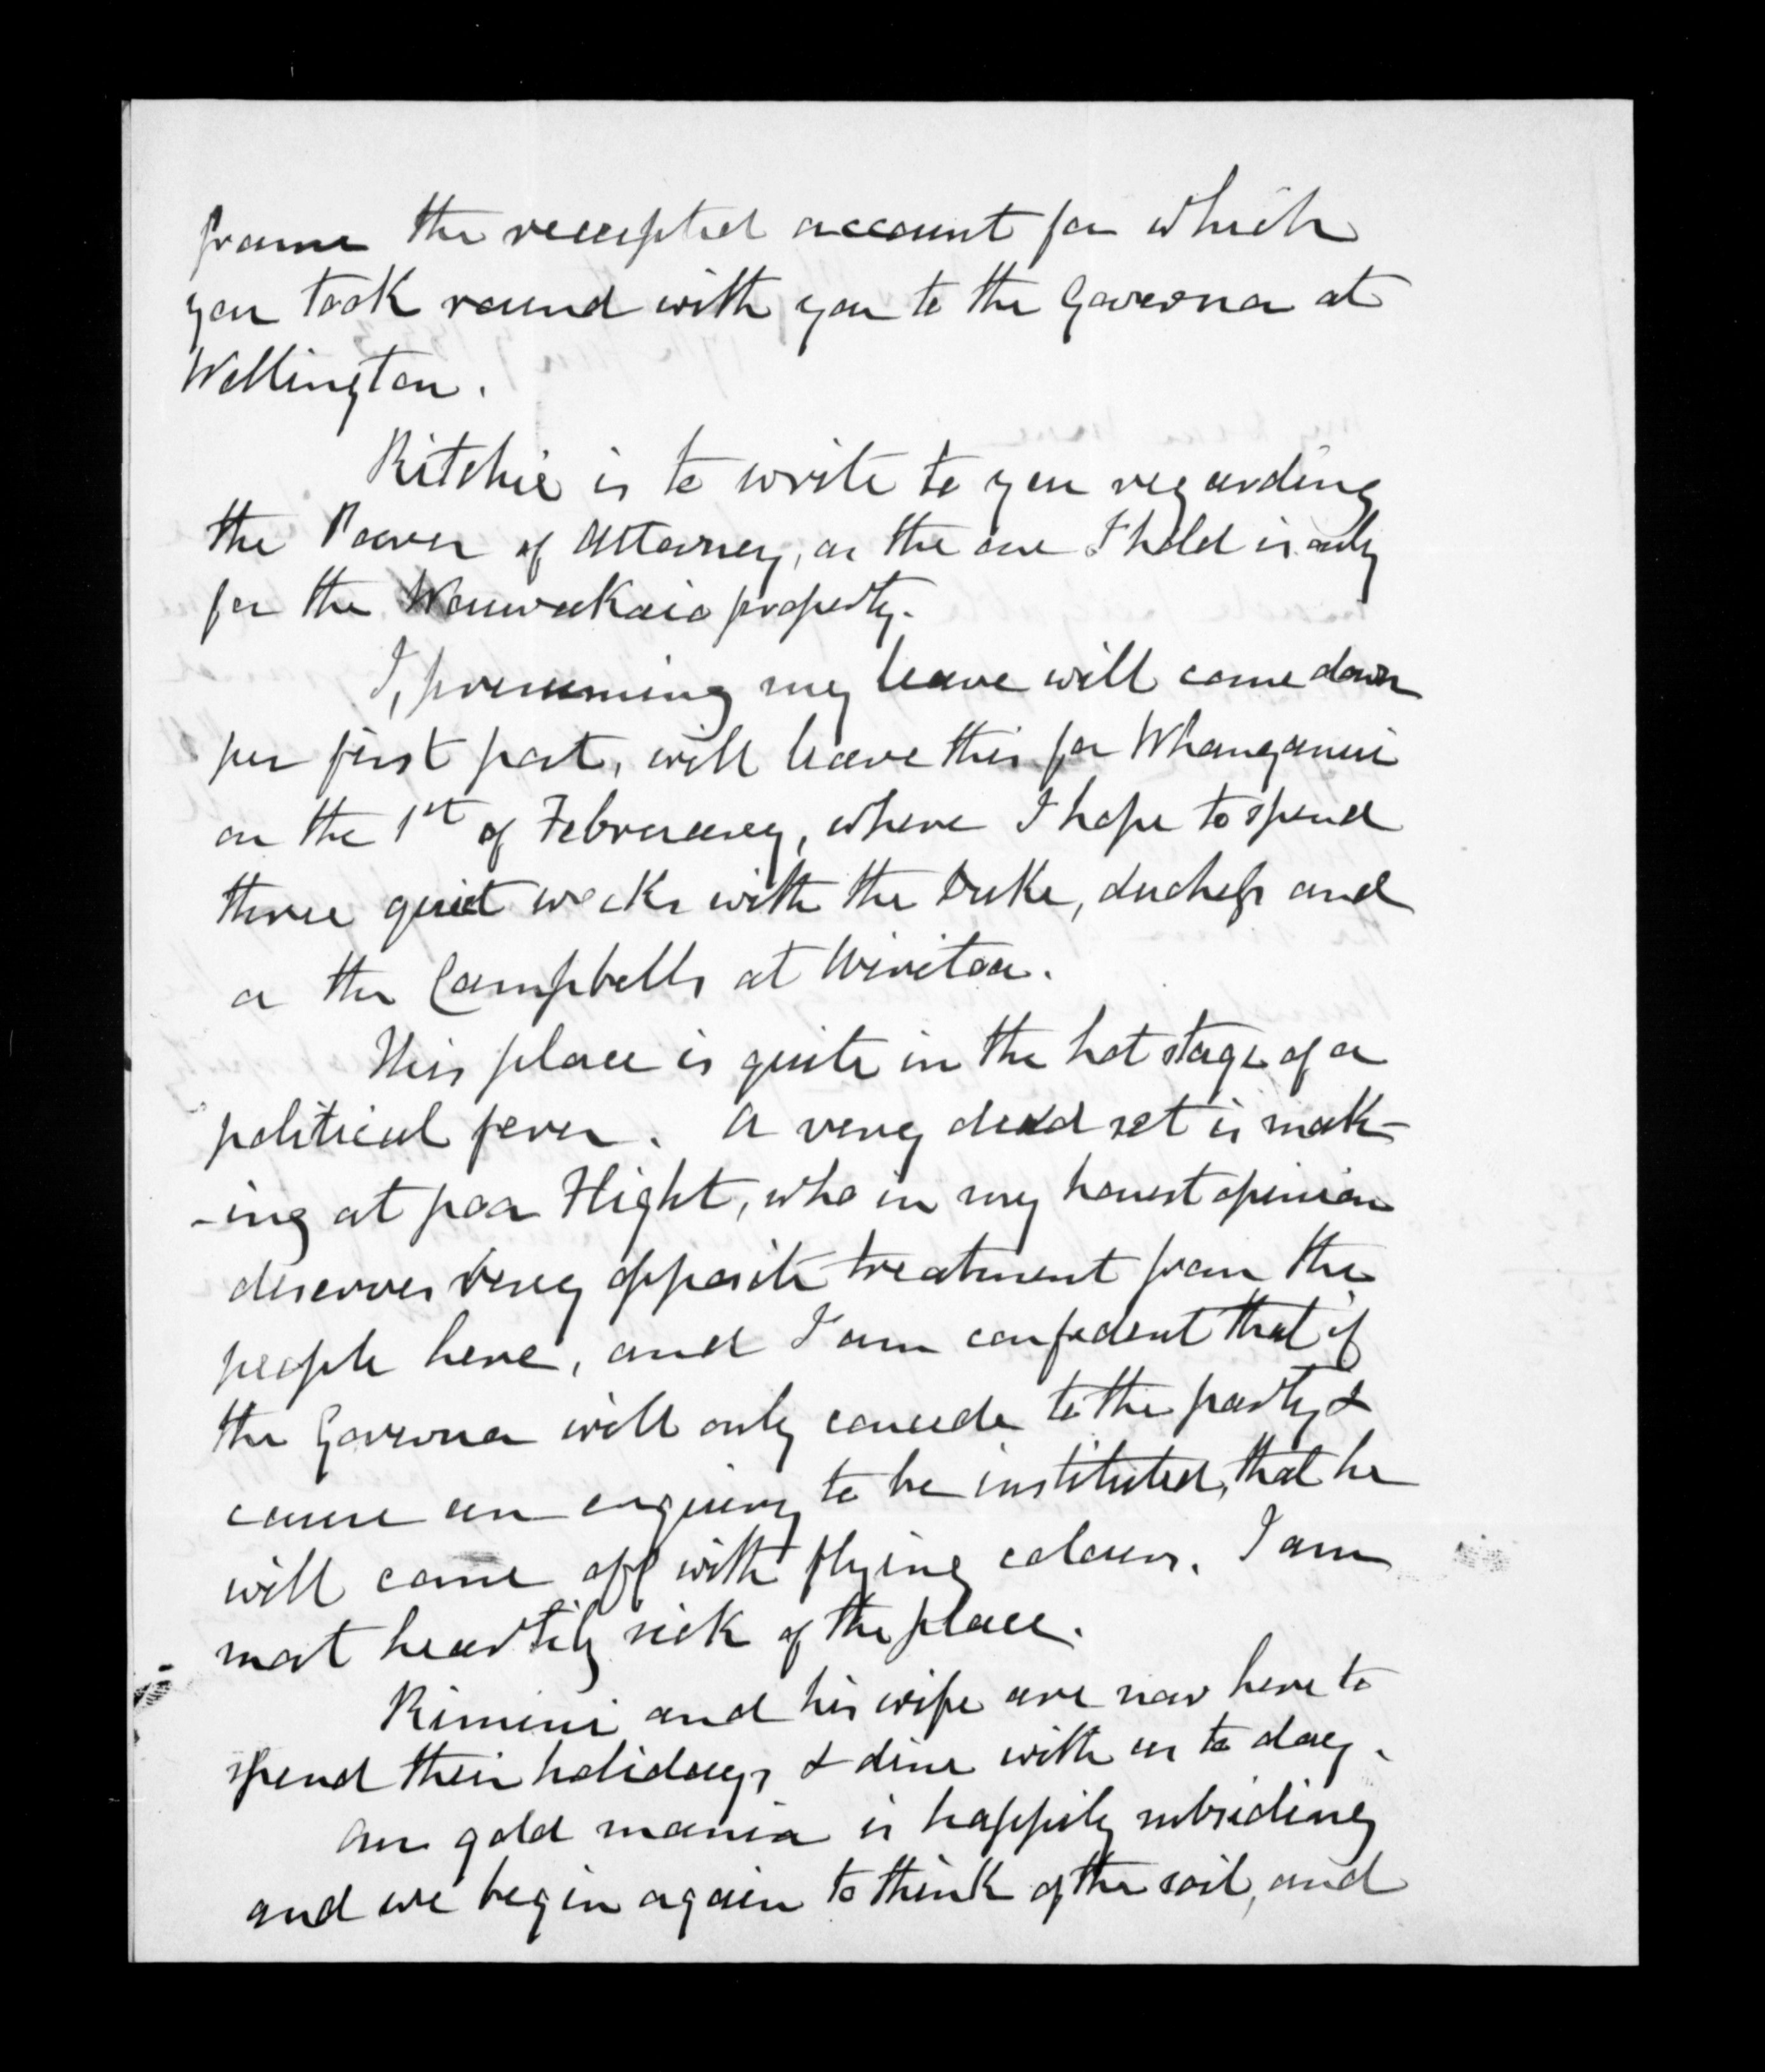 frame the receipted account for which
you took round with you to the Governor at
Wellington.
Ritchie is to write to you regarding
the Power of Attorney, as the one I hold is only
for the property.
I, presuming my leave will come down
per first post, will leave this for Whanganui
on the 1st of February, where I hope to spend
three quiet weeks with the Duke, duchess and
a the Campbells at Wiritoa.
This place is quite in the hot stage of a
political fever. A very dead set is mak-
-ing at poor Flight, who in my honest opinion
deserves very opposite treatment from the
people here, and I am confident that if
the Governor will only concede to the party &
cause an enquiry to be instituted, that he
will come off with flying colours. I am
most heartily sick of the place.
Rimini and his wife are now here to
spend their holidays & dine with us to day.
Our gold mania is happily subsiding
and we begin again to think of the soil, and